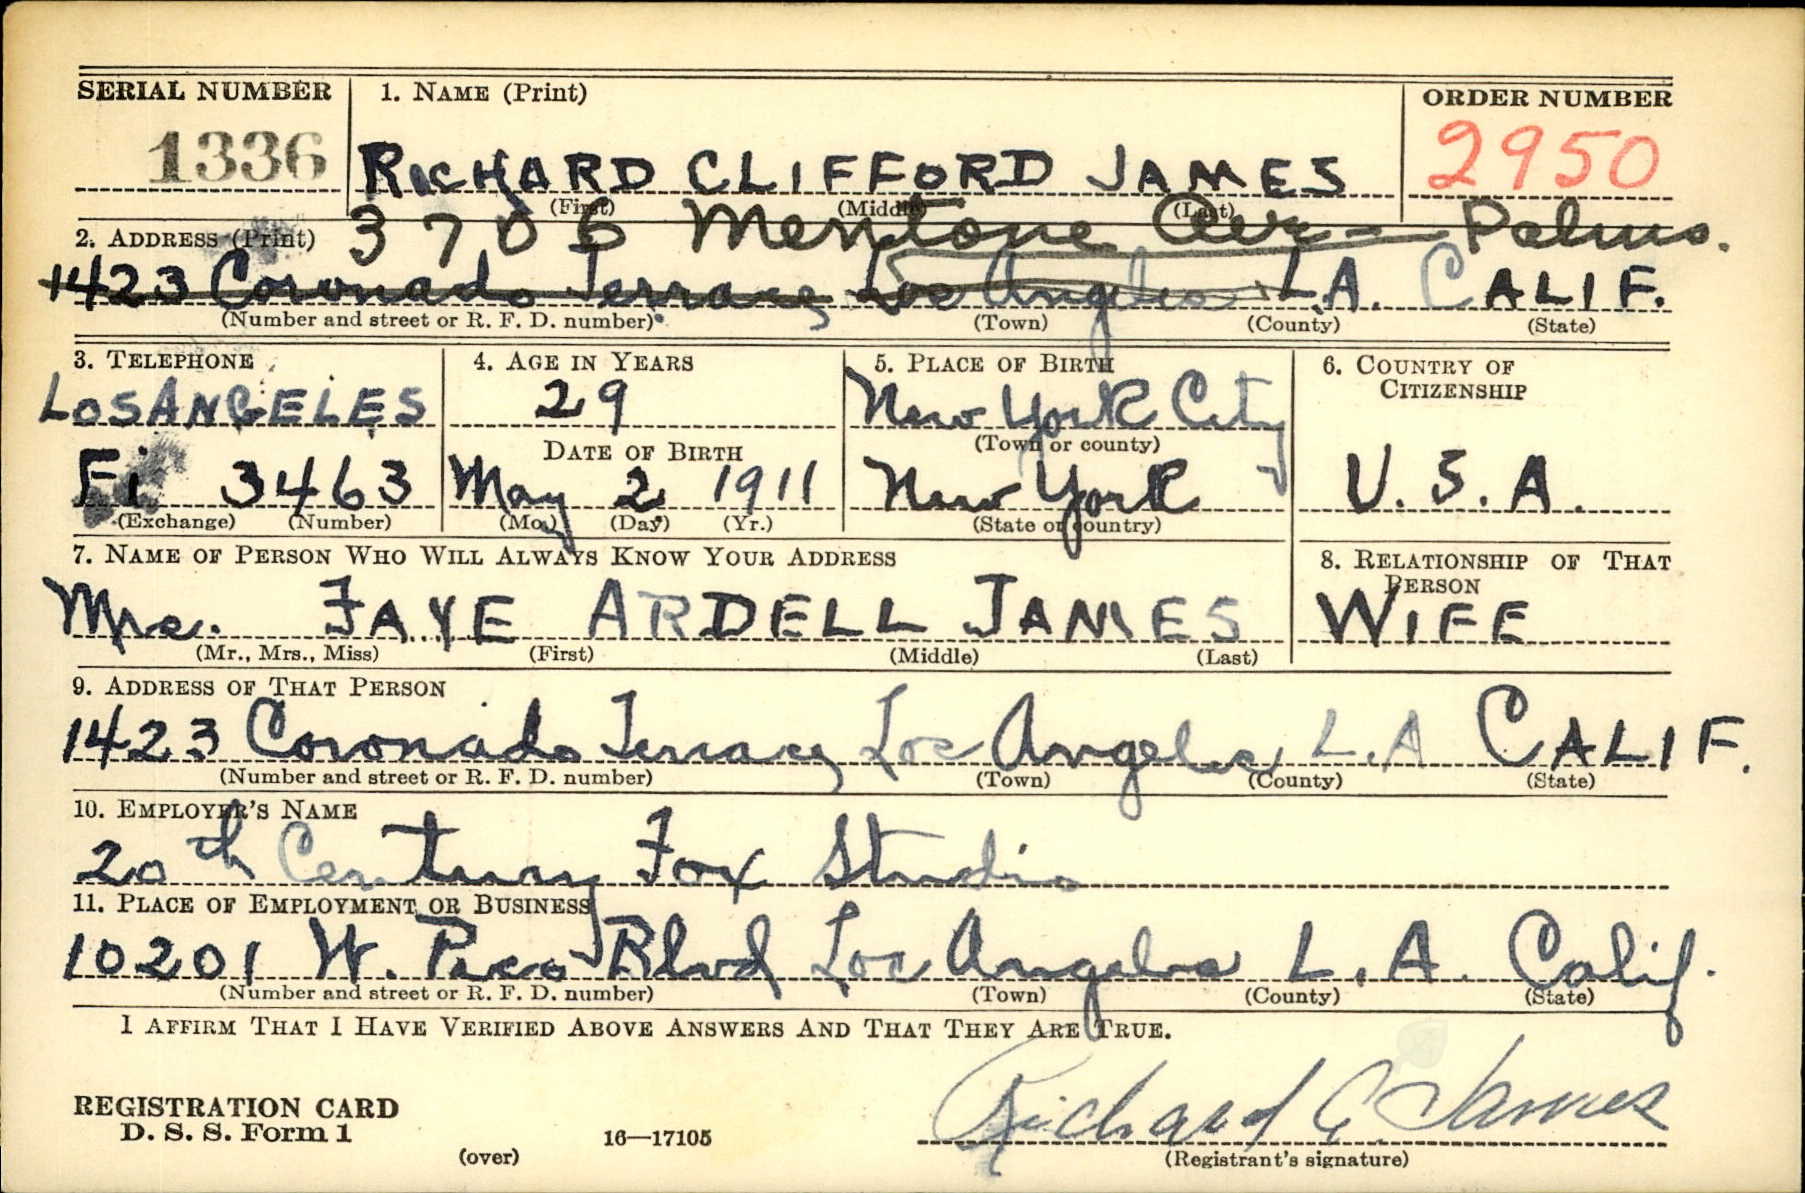 SERIAL NUMBER 1. NAME (Print) ORDER NUMBER
1336 RICHARD CLIFFORD JAMES 2950
(First) (Middle) (Last)
3706 Mentone Ave - Palms.
2. ADDRESS (Print)
1423 Coronado Terrace Los Angeles L.A. CALIF.
(Number and street or R. F. D. number) (Town) (County) (State)
3. TELEPHONE 4. AGE IN YEARS 5. PLACE OF BIRTH 6. COUNTRY OF CITIZENSHIP
LOS ANGELES 29 New York City
DATE OF BIRTH (Town or county)
Fi 3463 May 2 1911 New York U.S.A.
(Exchange) (Number) (Mo.) (Day) (Yr.) (State or country)
7. NAME OF PERSON WHO WILL ALWAYS KNOW YOUR ADDRESS 8. RELATIONSHIP OF THAT PERSON
Mrs. FAYE ARDELL JAMES WIFE
(Mr., Mrs., Miss) (First) (Middle) (Last)
9. ADDRESS OF THAT PERSON
1423 Coronado Terrace Los Angeles L.A CALIF.
(Number and street or R. F. D. number) (Town) (County) (State)
10. EMPLOYER'S NAME
20th Century Fox Studio
11. PLACE OF EMPLOYMENT OR BUSINESS
10201 W. Pico Blvd Los Angeles L.A. Calif.
(Number and street or R. F. D. number) (Town) (County) (State)
I AFFIRM THAT I HAVE VERIFIED ABOVE ANSWERS AND THAT THEY ARE TRUE.
Richard C. James
REGISTRATION CARD
D. S. S. Form 1 16—17105
(over) (Registrant's signature)